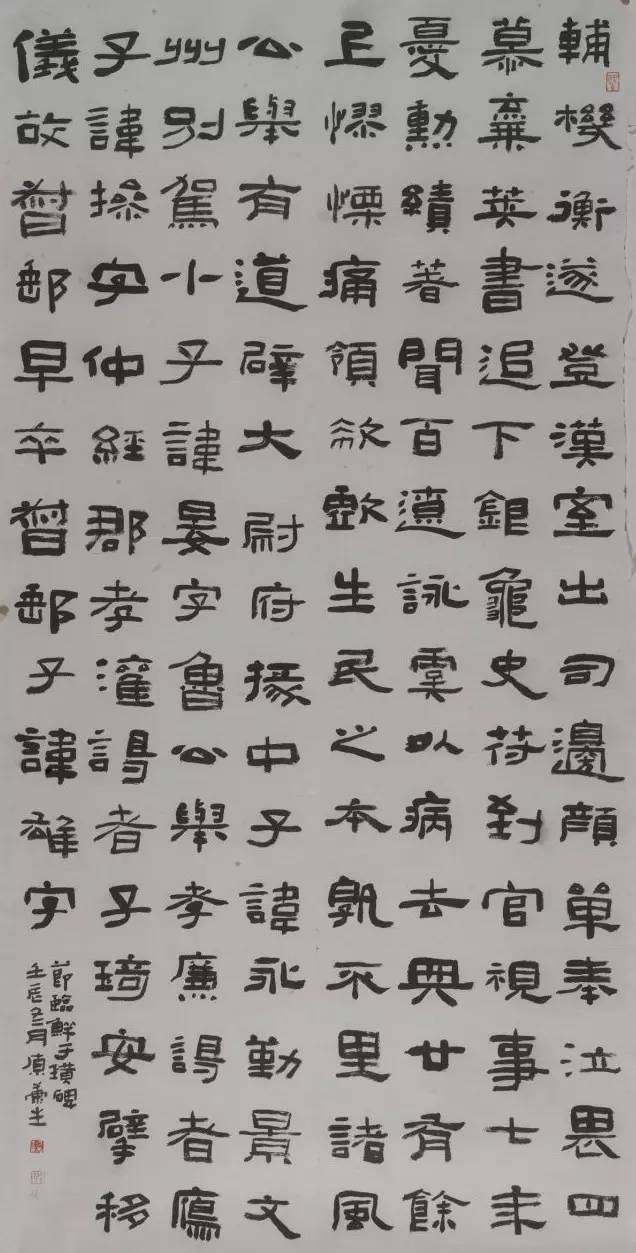 輔機衡遂登漢室出司邊顔單奉泣畏四
慕棄英書追下銀龜史符到官視事七年
憂勳績著聞百遺詠虞以病去典廿有餘
憀慄痛領欷歔生民之本孰不里諸風
公舉有道辟大尉府掾中子諱永勤景文
州別駕小子諱晏字魯公舉孝廉謁者鴈
子諱操字仲經郡孝灌謁者子琦安辟移
儀故督郵早卒督郵子諱雄字
節臨鮮于璜碑
壬辰